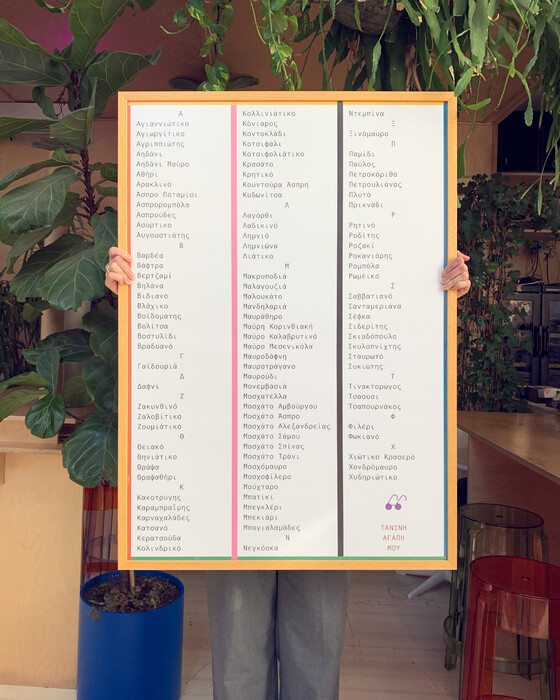 Α
Αγιαννιώτικο
Αγιωργίτικο
Αγριππιώτης
Αηδάνι
Αηδάνι Μαύρο
Αθήρι
Αρακλινό
Άσπρο Ποταμίσι
Ασπρορομπόλα
Ασπρούδες
Ασύρτικο
Αυγουστιάτης
Β
Βαρδέα
Βάφτρα
Βερτζαμί
Βηλάνα
Βιδιανό
Βλάχικο
Βοϊδομάτης
Βολίτσα
Βοστυλίδι
Βραδυανό
Γ
Γαϊδουριά
Δ
Δαφνί
Ζ
Ζακυνθινό
Ζαλοβίτικο
Ζουμιάτικο
Θ
Θειακό
Θηνιάτικο
Θράψα
Θραψαθήρι
Κ
Κακοτρύγης
Καραμπραΐμης
Καρναχαλάδες
Κατσανό
Κερατσούδα
Κολινδρικό
Κολλινιάτικο
Κόνιαρος
Κοντοκλάδι
Κοτσιφάλι
Κοτσιφολιάτικο
Κρασάτο
Κρητικό
Κουντούρα Άσπρη
Κυδωνίτσα
Λ
Λαγόρθι
Λαδικινό
Λημνιό
Λημνιώνα
Λιάτικο
Μ
Μακρυποδιά
Μαλαγουζιά
Μαλουκάτο
Μανδηλαριά
Μαυράθηρο
Μαύρη Κορινθιακή
Μαύρο Καλαβρυτινό
Μαύρο Μεσενικόλα
Μαυροδάφνη
Μαυροτράγανο
Μαυρούδι
Μονεμβασιά
Μοσχατέλλα
Μοσχάτο Αμβούργου
Μοσχάτο Άσπρο
Μοσχάτο Αλεξανδρείας
Μοσχάτο Σάμου
Μοσχάτο Σπίνας
Μοσχάτο Τράνι
Μοσχόμαυρο
Μοσχοφίλερο
Μούχταρο
Μπατίκι
Μπεγκλέρι
Μπεκιάρι
Μπογιαλαμάδες
Ν
Νεγκόσκα
Ντεμπίνα
Ξ
Ξινόμαυρο
Π
Παμίδι
Παύλος
Πετροκόριθο
Πετρουλιανός
Πλυτό
Πρικνάδι
Ρ
Ρητινό
Ροδίτης
Ροζακί
Ροκανιάρης
Ρομπόλα
Ρωμέικο
Σ
Σαββατιανό
Σανταμεριάνα
Σέφκα
Σιδερίτης
Σκιαδόπουλο
Σκυλοπνίχτης
Σταυρωτό
Συκιώτης
Τ
Τινακτορώγος
Τσαούσι
Τσαπουρνάκος
Φ
Φιλέρι
Φωκιανό
Χ
Χιώτικο Κρασερό
Χονδρόμαυρο
Χυδηριώτικο
ΤΑΝΙΝΗ
ΑΓΑΠΗ
ΜΟΥ